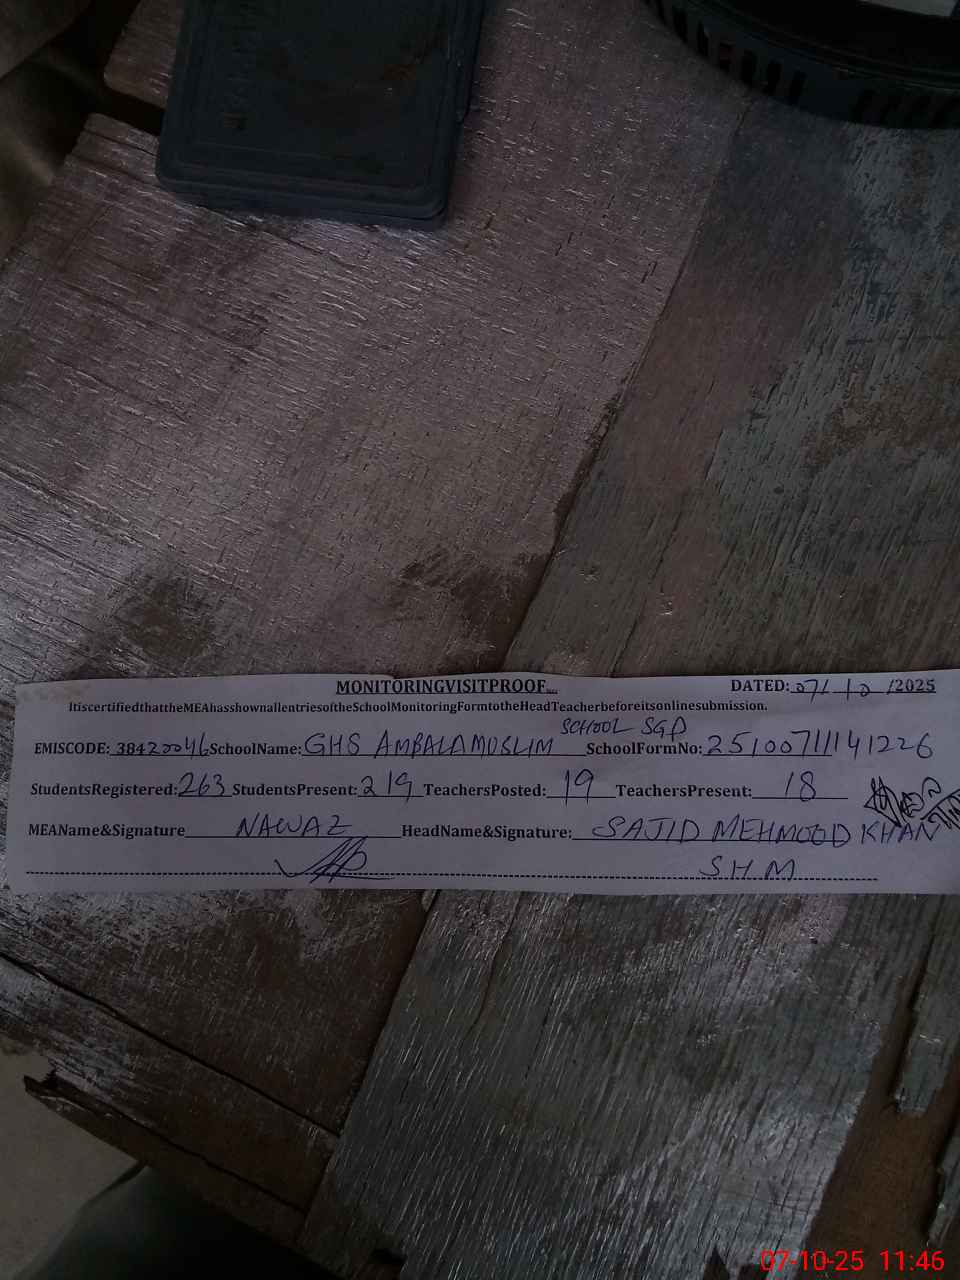 MONITORINGVISITPROOF....
DATED: 07/10/2025
ItiscertifiedthattheMEAhasshownallentriesoftheSchoolMonitoringFormtotheHeadTeacherbeforeitsonlinesubmission.
SCHOOL SGD
EMISCODE: 38420046 SchoolName: GHS AMBALA MUSLIM SchoolFormNo: 25100711141226
StudentsRegistered: 263 StudentsPresent: 219 TeachersPosted: 19 TeachersPresent: 18
MEAName&Signature NAWAZ HeadName&Signature: SAJID MEHMOOD KHAN
SHM
07-10-25 11:46